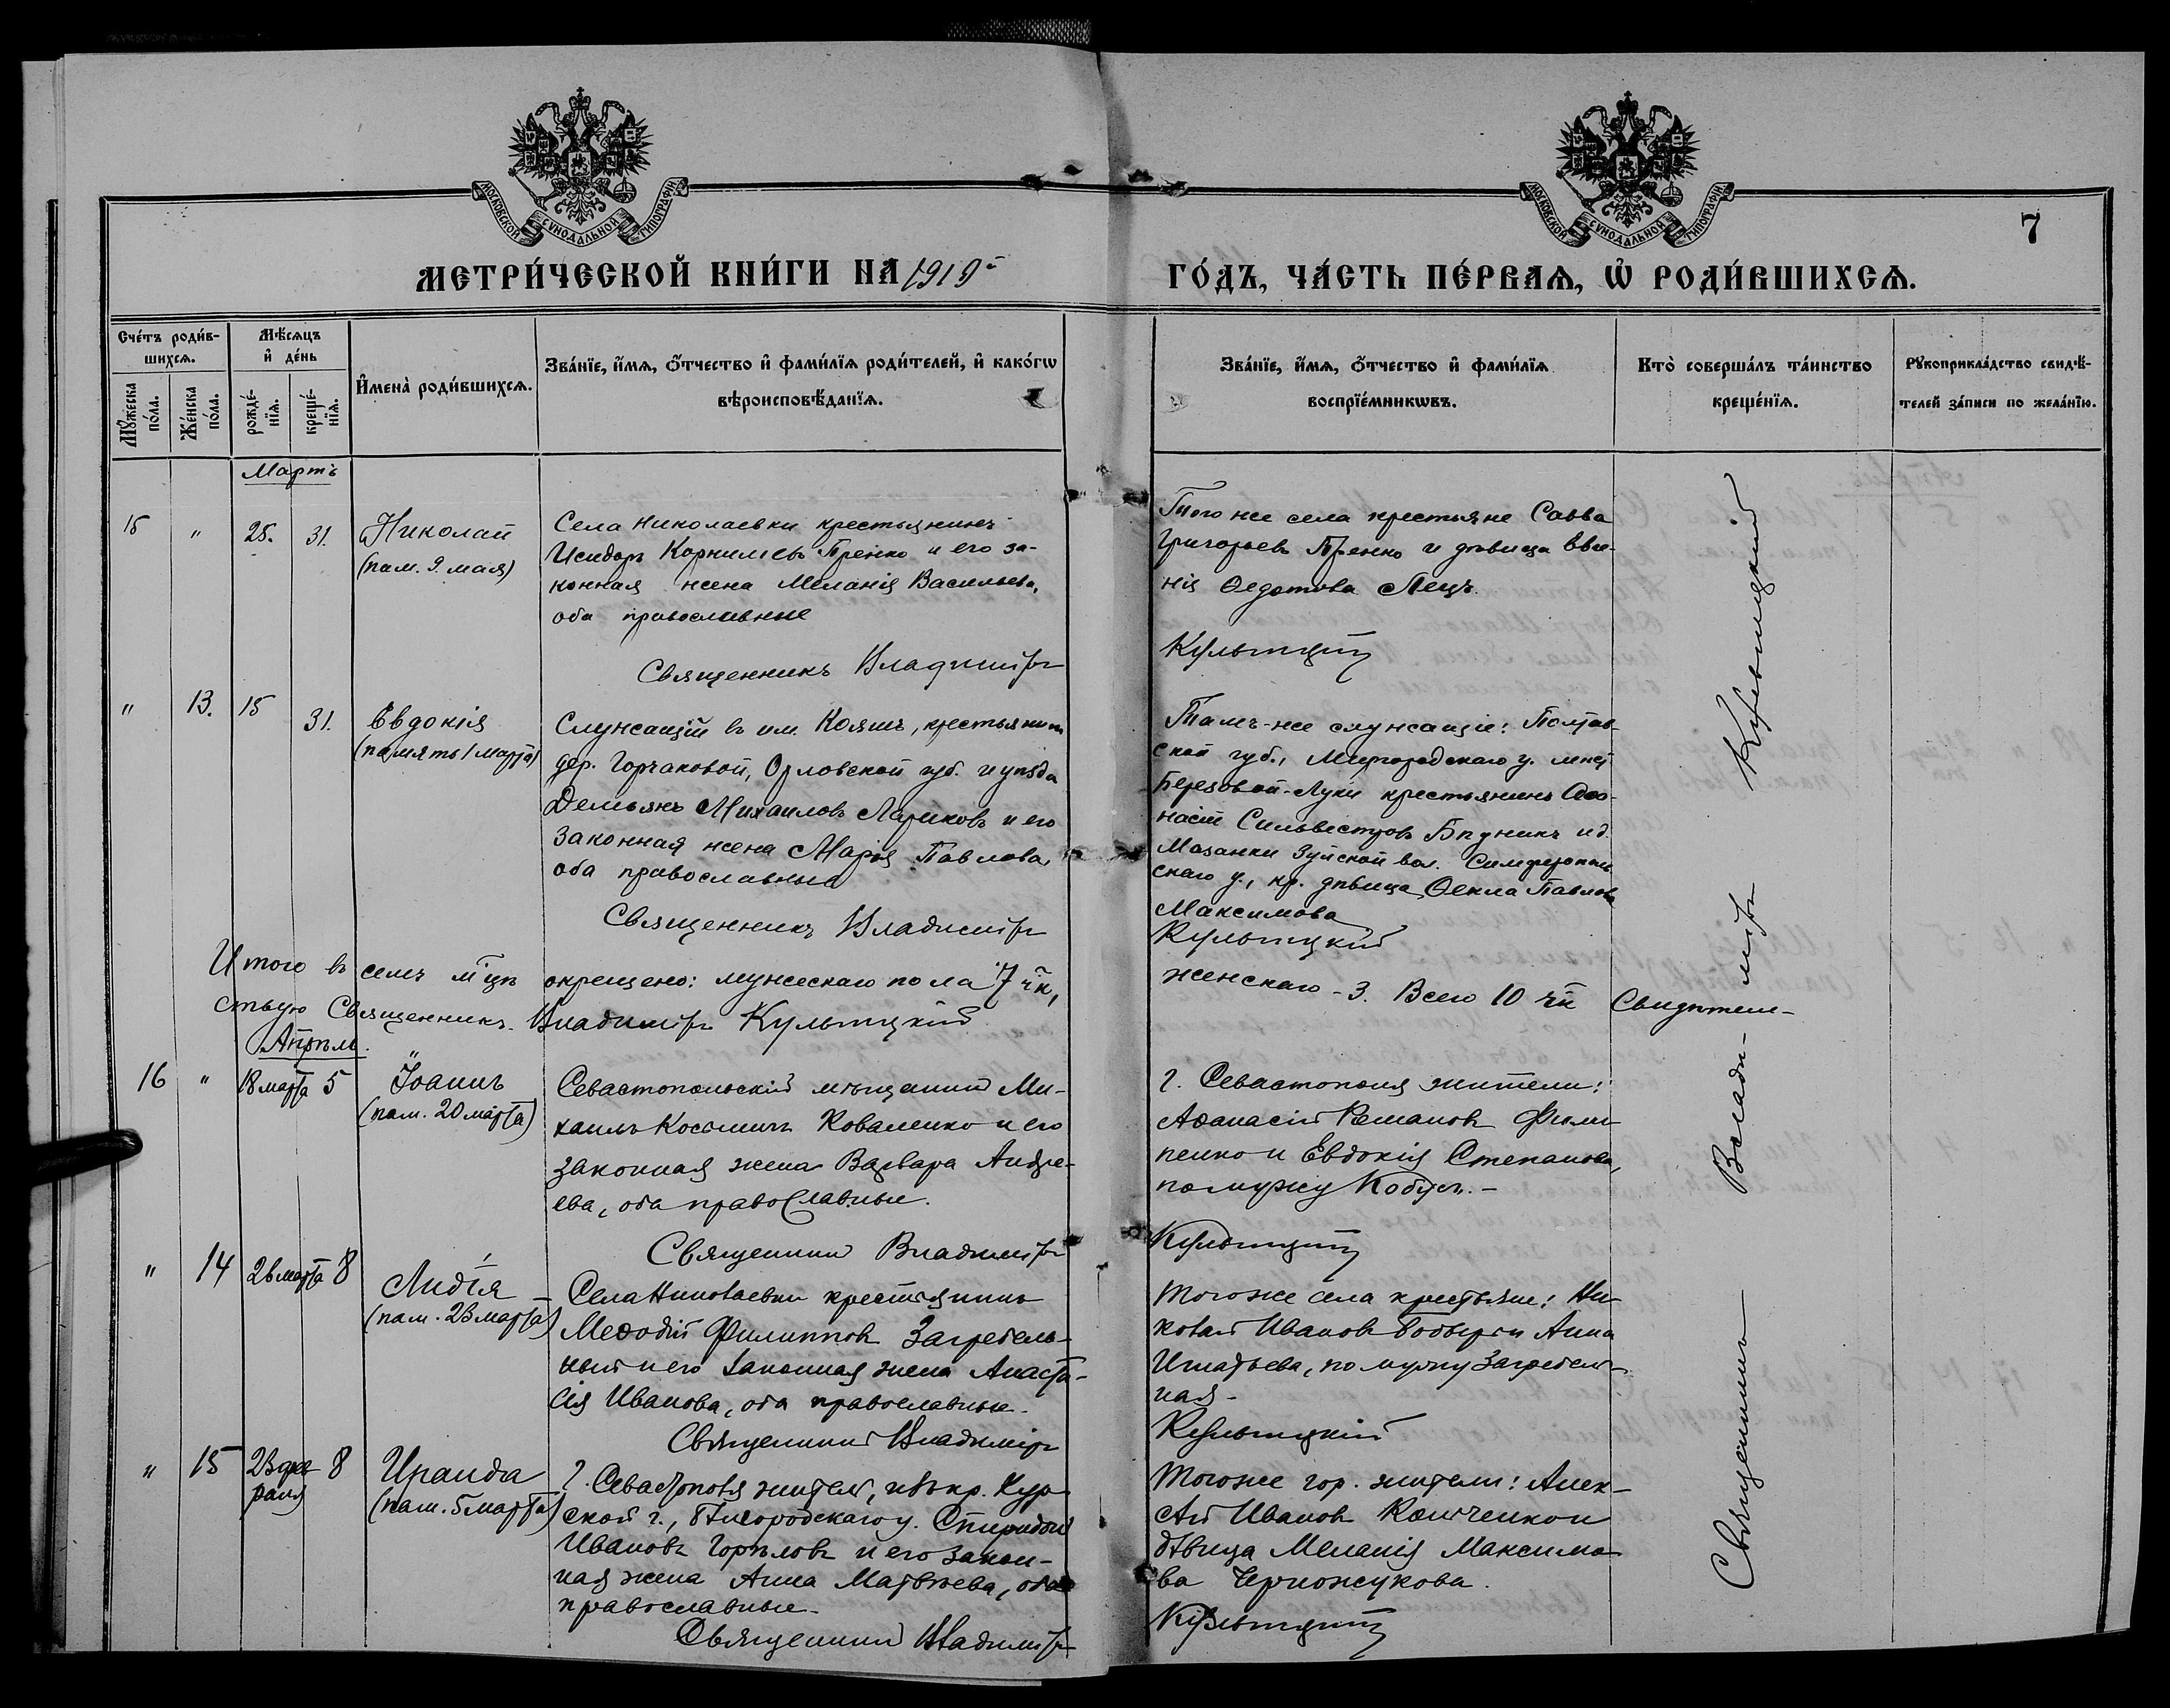 МОСКОВСКОЙ СѴНОДАЛЬНОЙ ТИПОГРАФІИ
МОСКОВСКОЙ СѴНОДАЛЬНОЙ ТИПОГРАФІИ
7
МЕТРИ́ЧЕСКОЙ КНИ́ГИ НА 1919й
ГО́ДЪ, ЧА́СТЬ ПЕ́РВАѦ, Ѡ҆ РОДИ́ВШИХСѦ.
Сче́тъ роди́в-
шихсѧ.
Мꙋ́жеска по́ла.
Же́нска по́ла.
Мѣ́сѧцъ
и҆ де́нь
рожде́-
нїѧ.
креще́-
нїѧ.
И҆мена̀ роди́вшихсѧ.
Зва́нїе, и҆́мѧ, ѻ҆́тчество и҆ фами́лїѧ роди́телей, и҆ како́гѡ
вѣроисповѣ́данїѧ.
Зва́нїе, и҆́мѧ, ѻ҆́тчество и҆ фами́лїѧ
воспрїе́мникѡвъ.
Кто̀ соверша́лъ та́инство
креще́нїѧ.
Рꙋкоприкла́дство свидѣ́-
телей за́писи по жела́нїю.
Мартъ
15 " 25. 31. Николай
(пам. 9. мая)
Села Николаевки крестьянинъ
Исидоръ Корнилiевъ Пренко и его за-
конная жена Меланія Васильева,
оба православные
Священникъ Владиміръ
Того же села крестьяне Савва
Григорьевъ Пренко и дѣвица Евге-
нія Ѳедотова Лецъ.
Кульчицкій
" 13. 15 31. Евдокія
(память 1 марта)
Служащій въ им. Кояшъ, крестьянинъ
дер. Горчаковой, Орловской губ. и уѣзда
Демьянъ Михаиловъ Лариковъ и его
законная жена Марія Павлова,
оба православные
Священникъ Владиміръ
Тамъ-же служащіе: Полтав-
ской губ., Миргородскаго у. мѣст
Березовой-Луки крестьянинъ Аѳа-
насій Сильвестровъ Бѣдникъ и д.
Мазанки Зуйской вол. Симферополь
скаго у., кр. дѣвица Ѳекла Павлова
Максимова
Кульчицкій
Итого въ семъ мцѣ окрещено: мужескаго пола 7 чк,
женскаго - 3. Всего 10 чк Свидѣтель-
ствую Священникъ Владиміръ Кульчицкій
Апрѣль.
16 " 18 марта 5 Іоаннъ
(пам. 20 марта)
Севастопольскій мѣщанинъ Ми-
хаилъ Косьмичъ Коваленко и его
законная жена Варвара Андре-
ева, оба православные.
Священникъ Владиміръ
г. Севастополя жители:
Аѳанасій Романовъ Фили
пенко и Евдокія Степанова,
по мужу Кобусъ. -
Кульчицкій
" 14 26 марта 8 Лидія
(пам. 23 марта)
Села Николаевки крестьянинъ
Меѳодій Филипповъ Загребель-
ный и его законная жена Анаста-
сія Иванова, оба православные.
Священникъ Владиміръ
Того же села крестьяне: Ни-
колай Ивановъ Бобырь и Анна
Игнатьева, по мужу Загребель-
ная -
Кульчицкій
" 15 23 фев-
раля 8 Ираида
(пам. 5 марта)
г. Севастополя житель, изъ кр. Кур
ской г., Бѣлгородскаго у. Спиридонъ
Ивановъ Горѣловъ и его закон-
ная жена Анна Матвѣева, оба
православные.
Священникъ Владиміръ
Того же гор. жители: Алек-
сѣй Ивановъ Компченко и
дѣвица Меланія Максимо-
ва Черножукова.
Кульчицкій
Священникъ Влади-міръ Кульчицкій